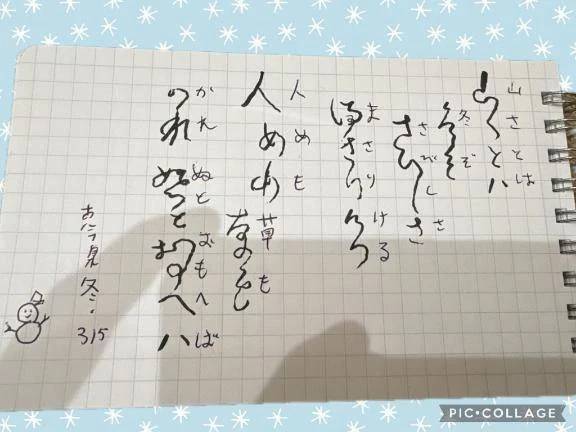 山さとは
山さとハ
冬ぞ
さびしさ
さひしさ
まさりける
満さりける
人めも草も
人めも
かれぬとおもへば
れぬとおもへハ
古今集 冬・315
PIC•COLLAGE